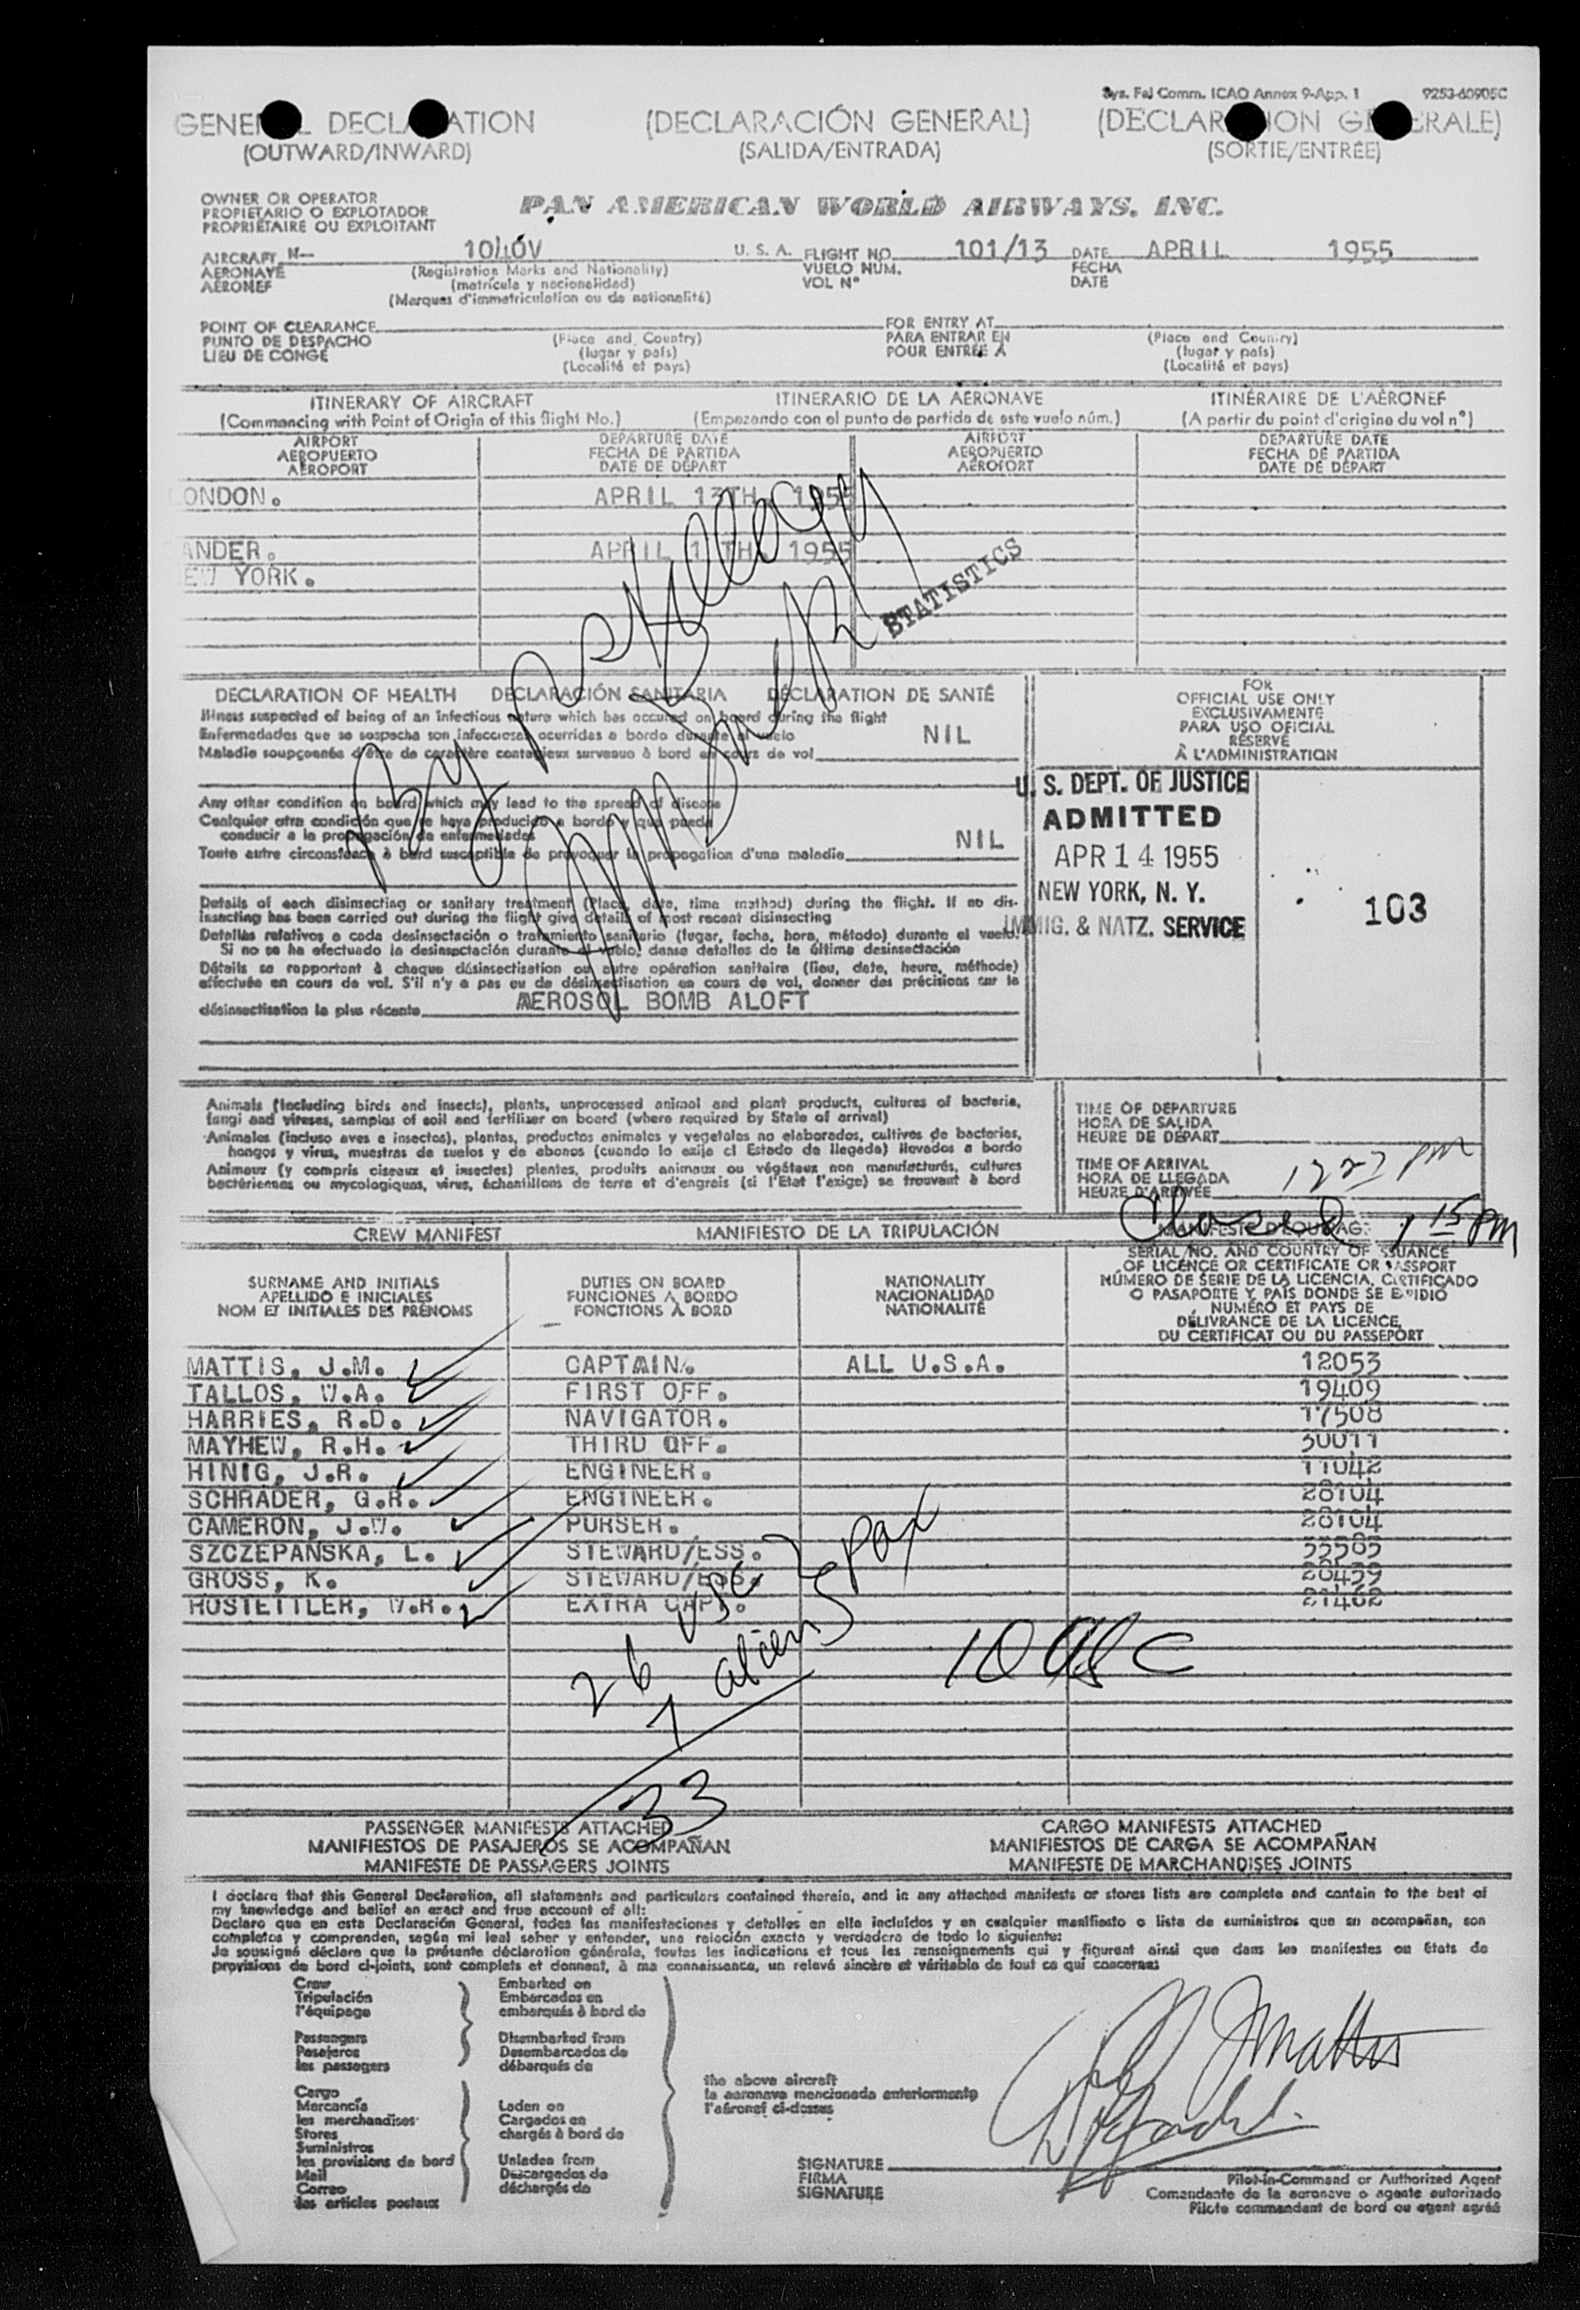 Sys. Fal Comm. ICAO Annex 9-App. 1 9253-60905C
GENERAL DECLARATION (DECLARACIÓN GENERAL) (DECLARATION GENERALE)
(OUTWARD/INWARD) (SALIDA/ENTRADA) (SORTIE/ENTRÉE)
OWNER OR OPERATOR
PROPIETARIO O EXPLOTADOR PAN AMERICAN WORLD AIRWAYS, INC.
PROPRIÉTAIRE OU EXPLOITANT
AIRCRAFT N- 1040V U. S. A. FLIGHT NO. 101/13 DATE APRIL 1955
AERONAVE (Registration Marks and Nationality) VUELO NÚM. FECHA
AÉRONEF (matrícula y nacionalidad) VOL Nº DATE
(Marques d'immatriculation ou de nationalité)
POINT OF CLEARANCE FOR ENTRY AT
PUNTO DE DESPACHO (Place and Country) PARA ENTRAR EN (Place and Country)
LIEU DE CONGÉ (lugar y país) POUR ENTRÉE À (lugar y país)
(Localité et pays) (Localité et pays)
ITINERARY OF AIRCRAFT ITINERARIO DE LA AERONAVE ITINÉRAIRE DE L'AÉRONEF
(Commencing with Point of Origin of this flight No.) (Empezando con el punto de partida de este vuelo núm.) (A partir du point d'origine du vol nº)
AIRPORT DEPARTURE DATE AIRPORT DEPARTURE DATE
AEROPUERTO FECHA DE PARTIDA AEROPUERTO FECHA DE PARTIDA
AÉROPORT DATE DE DÉPART AÉROPORT DATE DE DÉPART
ONDON. APRIL 13TH, 1955
ANDER. APRIL 1 TH, 1955
EW YORK.
STATISTICS
By
DECLARATION OF HEALTH DECLARACIÓN SANITARIA DÉCLARATION DE SANTÉ
Illness suspected of being of an infectious nature which has occured on board during the flight
Enfermedades que se sospecha son infecciosas ocurridas a bordo durante el vuelo NIL
Maladie soupçonnée d'être de caractère contagieux survenue à bord en cours de vol
Any other condition on board which may lead to the spread of disease
Cualquier otra condición que se haya producido a bordo y que pueda
conducir a la propagación de enfermedades NIL
Toute autre circonstance à bord susceptible de provoquer la propagation d'une maladie
Details of each disinsecting or sanitary treatment (Place, date, time method) during the flight. If no dis-
insecting has been carried out during the flight give details of most recent disinsecting
Detalles relativos a cada desinsectación o tratamiento sanitario (lugar, fecha, hora, método) durante el vuelo.
Si no se ha efectuado la desinsectación durante el vuelo, dense detalles de la última desinsectación
Détails se rapportant à chaque désinsectisation ou autre opération sanitaire (lieu, date, heure, méthode)
effectuée en cours de vol. S'il n'y a pas eu de désinsectisation en cours de vol, donner des précisions sur la
désinsectisation la plus récente AEROSOL BOMB ALOFT
FOR
OFFICIAL USE ONLY
EXCLUSIVAMENTE
PARA USO OFICIAL
RÉSERVÉ
À L'ADMINISTRATION
U. S. DEPT. OF JUSTICE
ADMITTED
APR 14 1955
NEW YORK, N. Y.
IMMIG. & NATZ. SERVICE
103
Animals (including birds and insects), plants, unprocessed animal and plant products, cultures of bacteria,
fungi and viruses, samples of soil and fertiliser on board (where required by State of arrival)
Animales (incluso aves e insectos), plantas, productos animales y vegetales no elaborados, cultivos de bacterias,
hongos y virus, muestras de suelos y de abonos (cuando lo exija el Estado de llegada) llevados a bordo
Animaux (y compris oiseaux et insectes) plantes, produits animaux ou végétaux non manufacturés, cultures
bactériennes ou mycologiques, virus, échantillons de terre et d'engrais (si l'Etat l'exige) se trouvant à bord
TIME OF DEPARTURE
HORA DE SALIDA
HEURE DE DÉPART
TIME OF ARRIVAL
HORA DE LLEGADA
HEURE D'ARRIVÉE
Closed 1 15 pm
CREW MANIFEST MANIFIESTO DE LA TRIPULACIÓN
SURNAME AND INITIALS
APELLIDO E INICIALES
NOM ET INITIALES DES PRÉNOMS
DUTIES ON BOARD
FUNCIONES A BORDO
FONCTIONS À BORD
NATIONALITY
NACIONALIDAD
NATIONALITÉ
SERIAL NO. AND COUNTRY OF ISSUANCE
OF LICENCE OR CERTIFICATE OR PASSPORT
NÚMERO DE SERIE DE LA LICENCIA, CERTIFICADO
O PASAPORTE Y PAÍS DONDE SE EXPIDIÓ
NUMÉRO ET PAYS DE
DÉLIVRANCE DE LA LICENCE,
DU CERTIFICAT OU DU PASSEPORT
MATTIS, J.M. CAPTAIN. ALL U.S.A. 12053
TALLOS, W.A. FIRST OFF. 19409
HARRIES, R.D. NAVIGATOR. 17508
MAYHEW, R.H. THIRD OFF.
HINIG, J.R. ENGINEER. 11042
SCHRADER, G.R. ENGINEER. 28104
CAMERON, J.W. PURSER. 28104
SZCZEPANSKA, L. STEWARD/ESS.
GROSS, K. STEWARD/ESS.
HOSTETTLER, W.R. EXTRA CAPT.
26 usc
7 aliens pax
33
10 usc
PASSENGER MANIFESTS ATTACHED CARGO MANIFESTS ATTACHED
MANIFIESTOS DE PASAJEROS SE ACOMPAÑAN MANIFIESTOS DE CARGA SE ACOMPAÑAN
MANIFESTE DE PASSAGERS JOINTS MANIFESTE DE MARCHANDISES JOINTS
I declare that this General Declaration, all statements and particulars contained therein, and in any attached manifests or stores lists are complete and contain to the best of
my knowledge and belief an exact and true account of all:
Declaro que en esta Declaración General, todas las manifestaciones y detalles en ella incluídos y en cualquier manifiesto o lista de suministros que se acompañan, son
completos y comprenden, según mi leal saber y entender, una relación exacta y verdadera de todo lo siguiente:
Je soussigné déclare que la présente déclaration générale, toutes les indications et tous les renseignements qui y figurent ainsi que dans les manifestes ou états de
provisions de bord ci-joints, sont complets et donnent, à ma connaissance, un relevé sincère et véritable de tout ce qui concerne:
Crew
Tripulación
l'équipage
Passengers
Pasajeros
les passagers
Cargo
Mercancía
les merchandises
Stores
Suministros
les provisions de bord
Mail
Correo
les articles postaux
Embarked on
Embarcados en
embarqués à bord de
Disembarked from
Desembarcados de
débarqués de
Laden on
Cargados en
chargés à bord de
Unladen from
Descargados de
déchargés de
the above aircraft
la aeronave mencionada anteriormente
l'aéronef ci-dessus
J Mattis
SIGNATURE
FIRMA
SIGNATURE
Pilot-in-Command or Authorized Agent
Comandante de la aeronave o agente autorizado
Pilote commandant de bord ou agent agréé